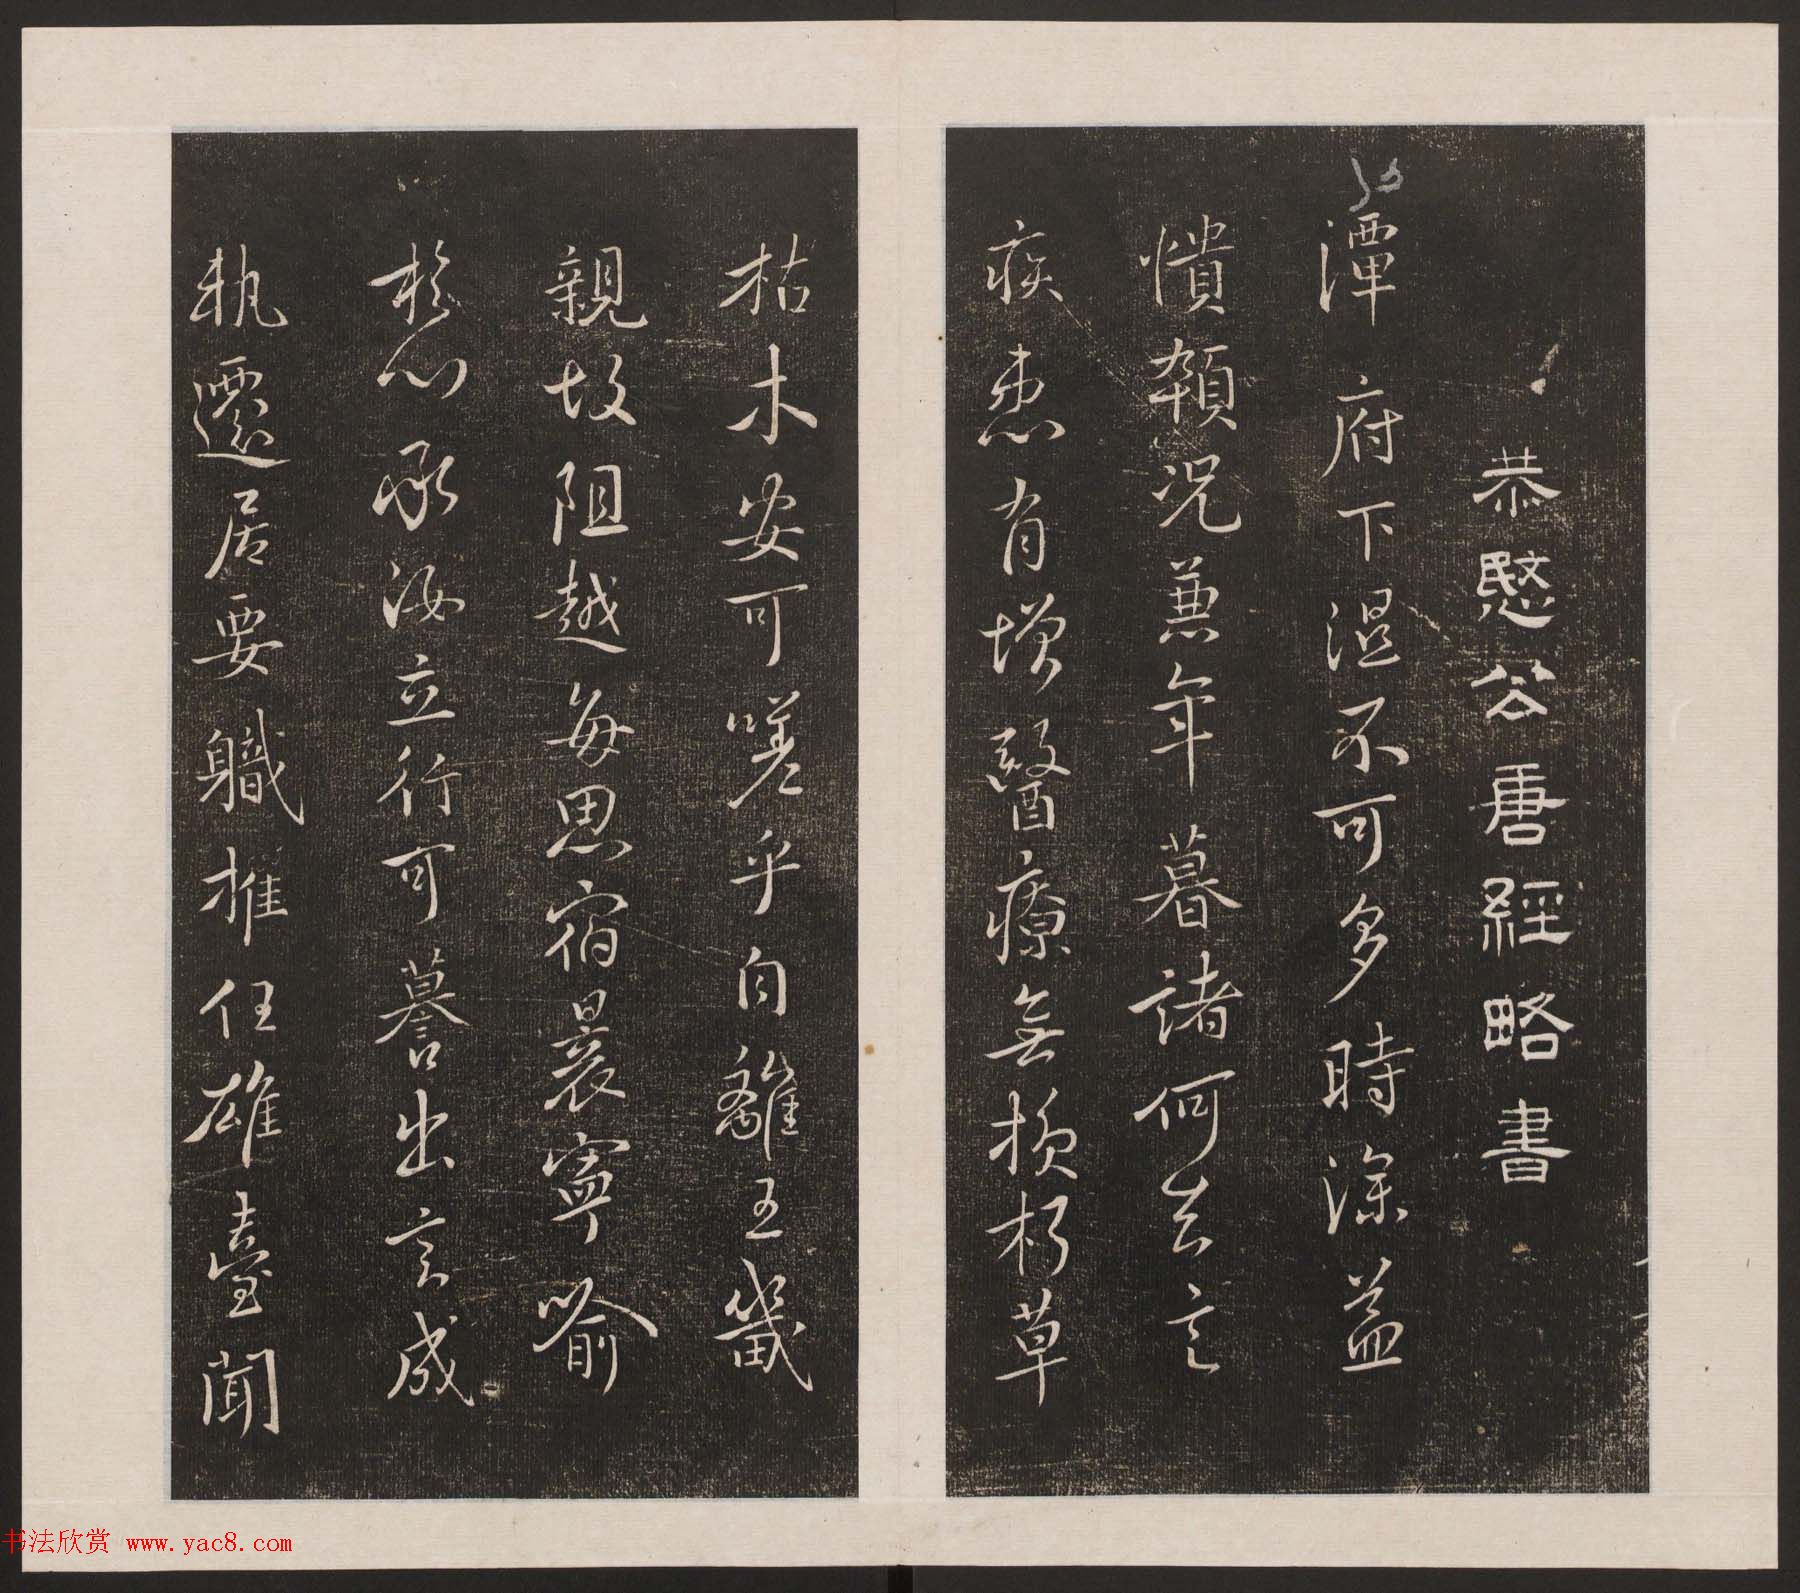 恭愍公唐經略書
潭府下濕不可多時深益
憒顇況兼年暮諸何足言
疾患有增醫療無損朽草
枯木安可嗟乎自離王畿
親故阻越每思宿晨寧喻
於心承汝立行可謩出言成
軌遷居要職推任雄臺聞
书法欣赏 www.yac8.com